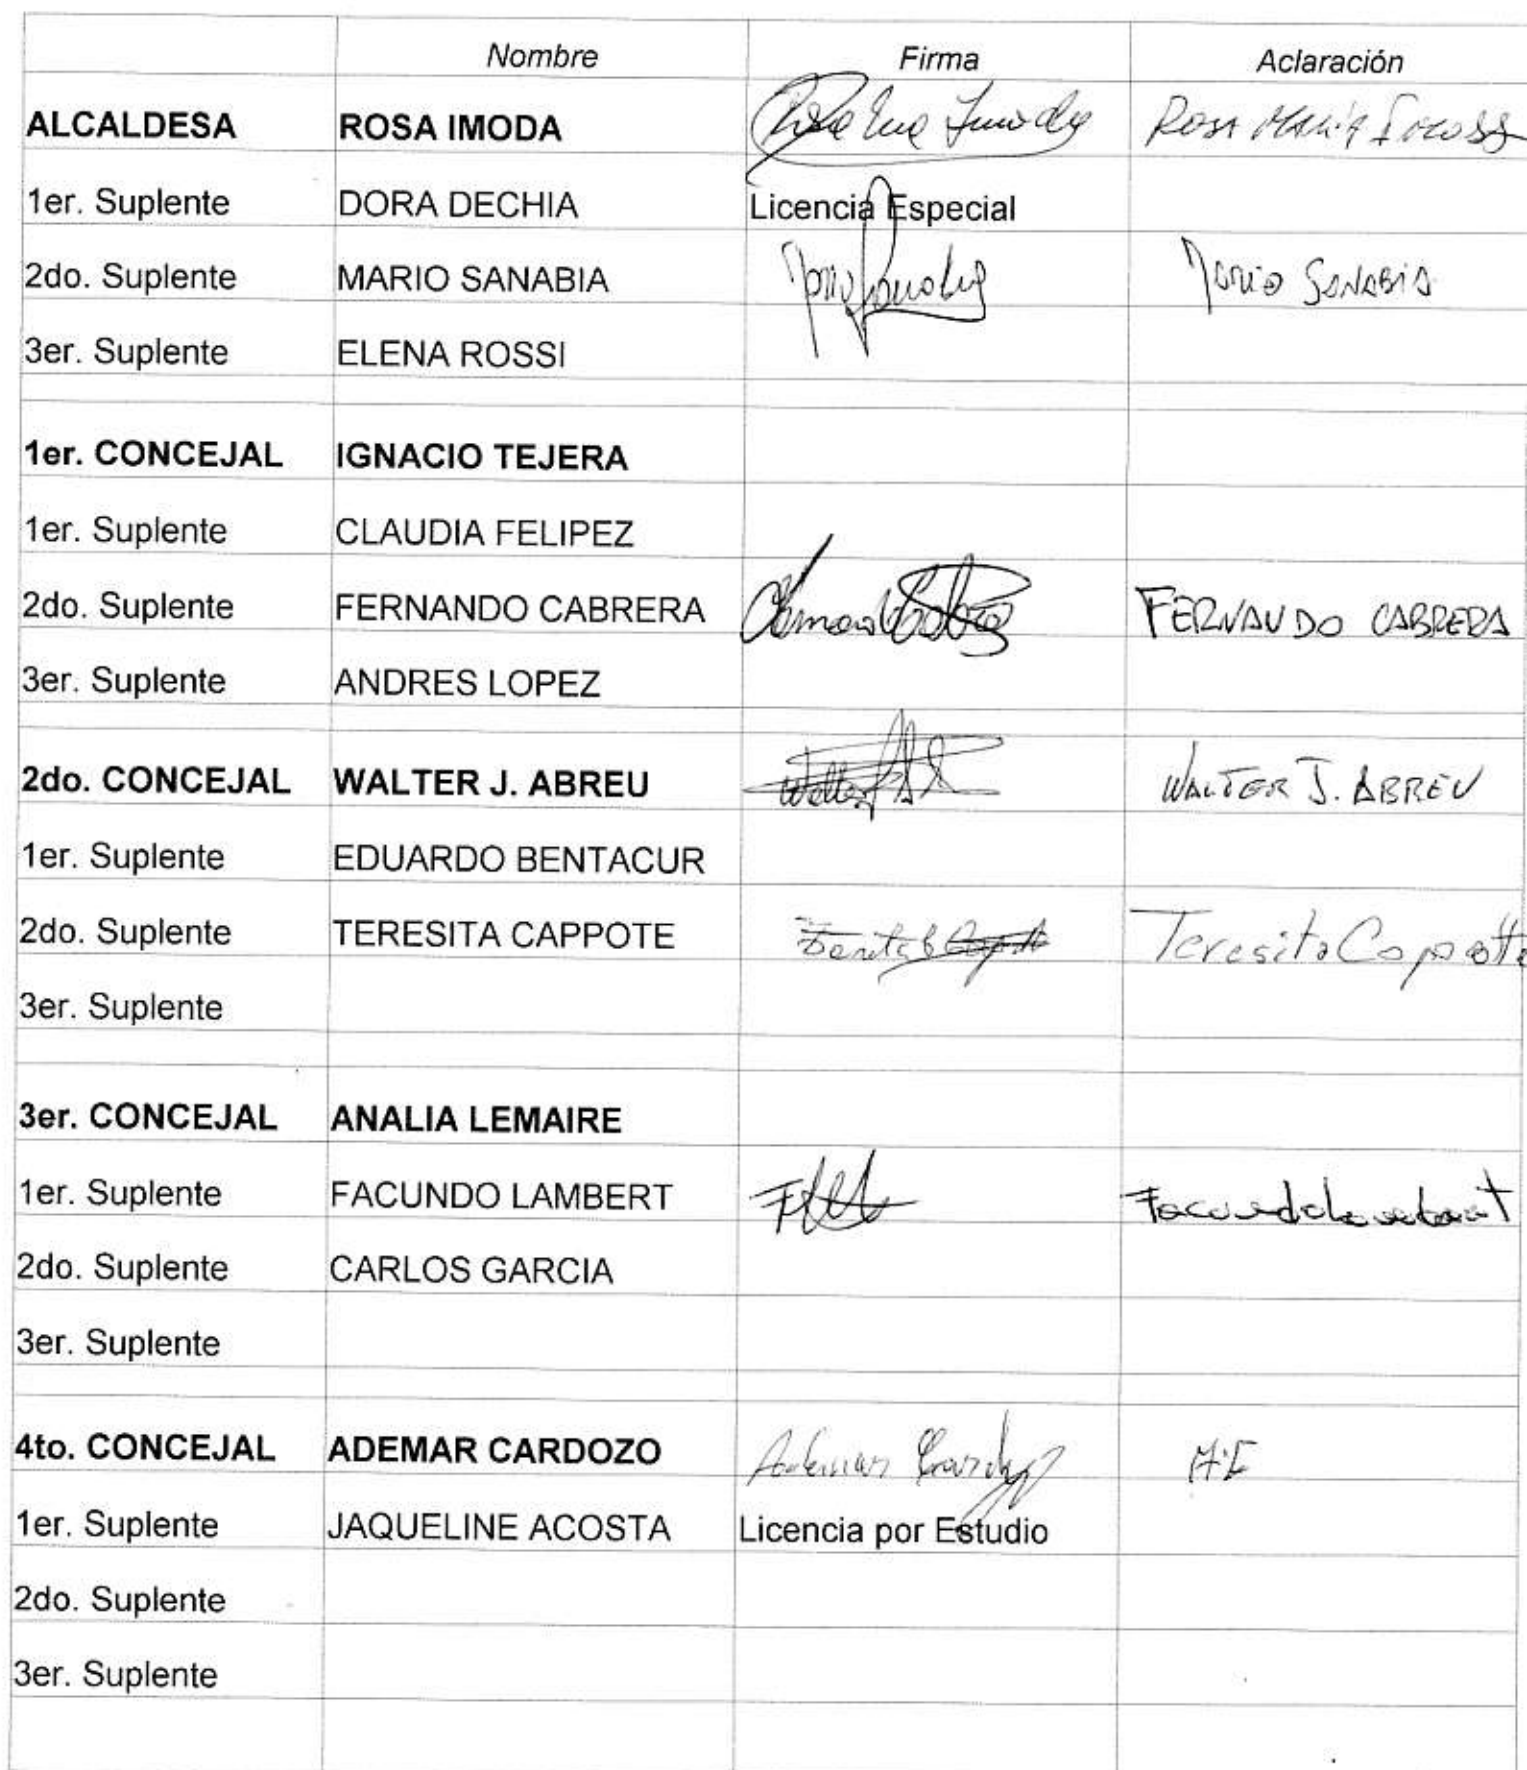 Nombre Firma Aclaración
ALCALDESA ROSA IMODA Rosa María Imoda
1er. Suplente DORA DECHIA Licencia Especial
2do. Suplente MARIO SANABIA Mario SANABIA
3er. Suplente ELENA ROSSI
1er. CONCEJAL IGNACIO TEJERA
1er. Suplente CLAUDIA FELIPEZ
2do. Suplente FERNANDO CABRERA FERNANDO CABRERA
3er. Suplente ANDRES LOPEZ
2do. CONCEJAL WALTER J. ABREU Walter WALTER J. ABREU
1er. Suplente EDUARDO BENTACUR
2do. Suplente TERESITA CAPPOTE Teresita Cappotte
3er. Suplente
3er. CONCEJAL ANALIA LEMAIRE
1er. Suplente FACUNDO LAMBERT Facundo Lambert
2do. Suplente CARLOS GARCIA
3er. Suplente
4to. CONCEJAL ADEMAR CARDOZO Ademar Cardozo
1er. Suplente JAQUELINE ACOSTA Licencia por Estudio
2do. Suplente
3er. Suplente